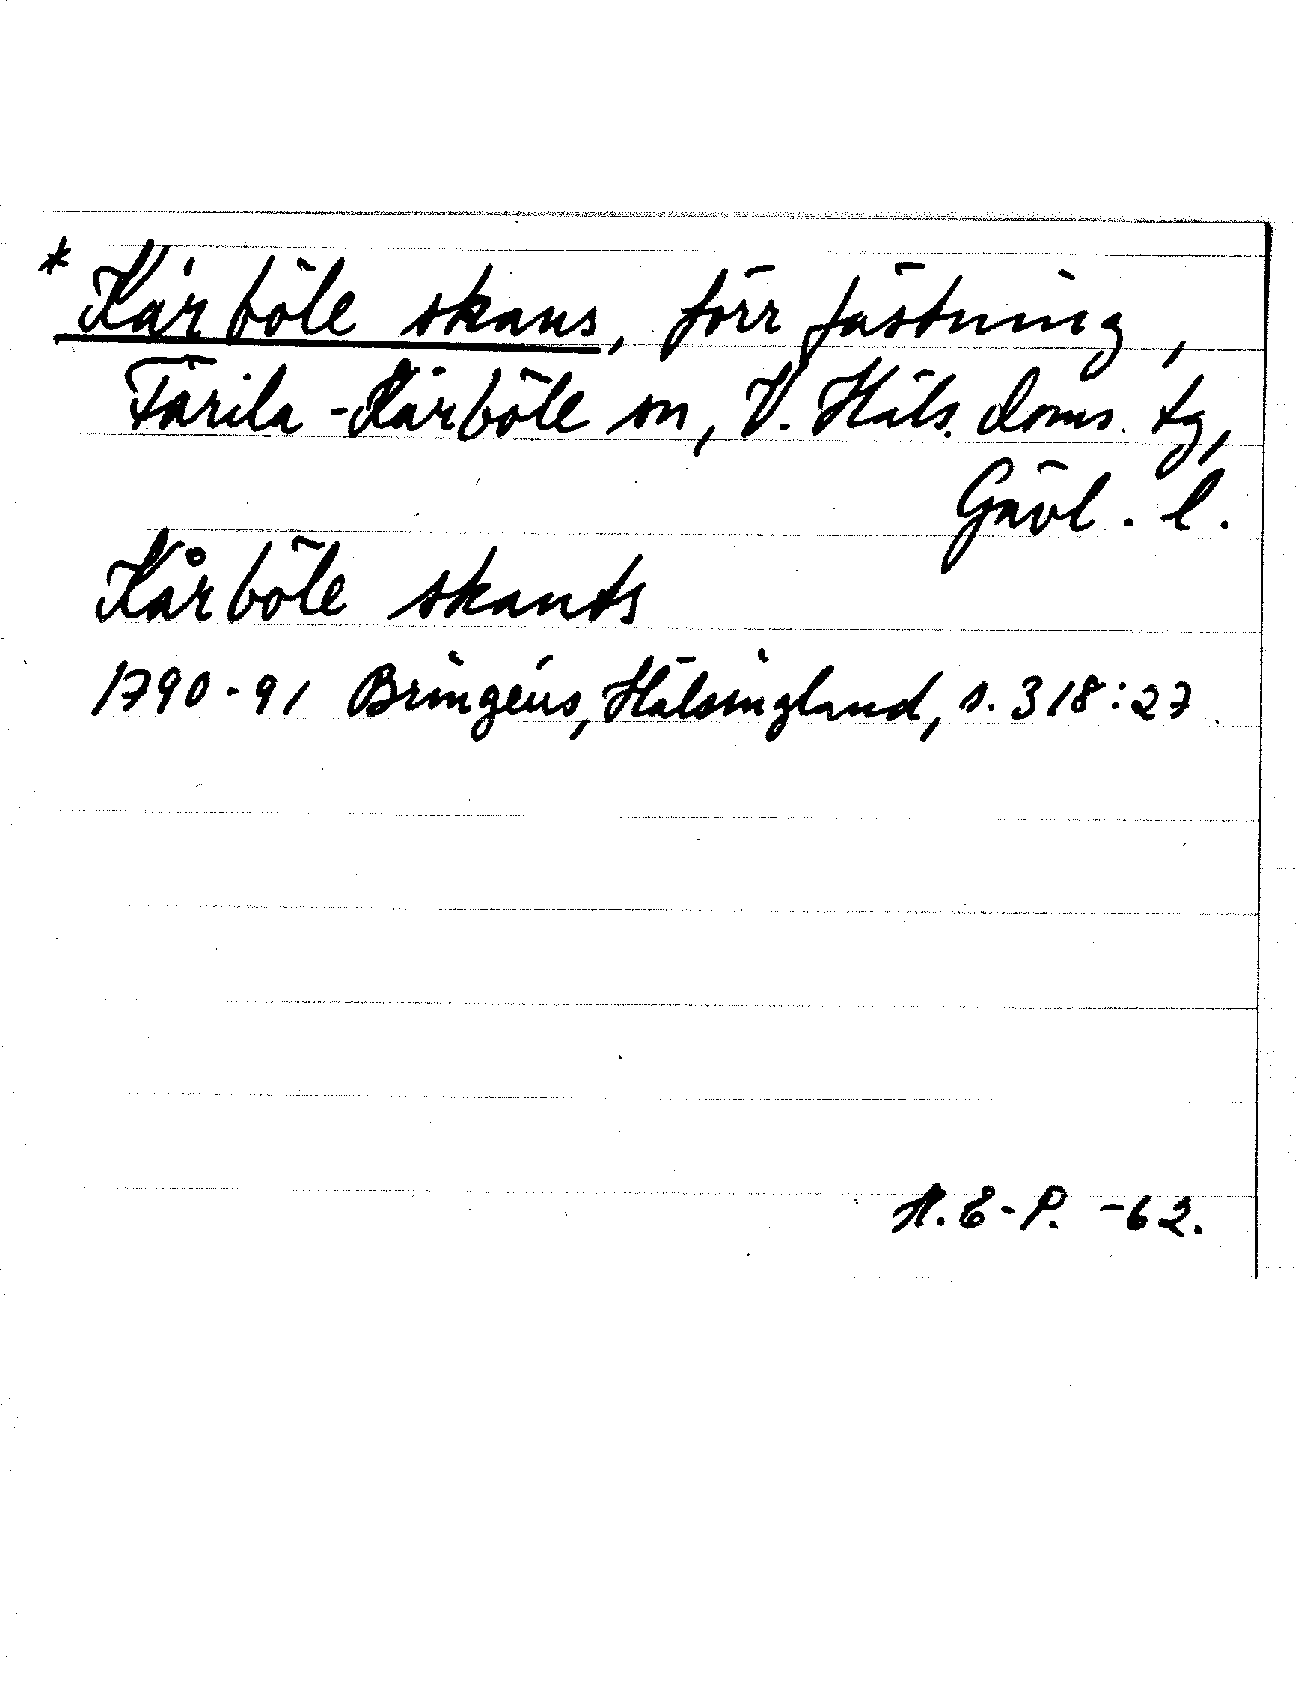 * Kårböle skans, förr fästning,
Färila-Kårböle sn, V. Häls. doms. tg,
Gävl. l.
Kårböle skants
1790-91 Bringéus, Hälsingland, s. 318:27
H. E-P. -62.